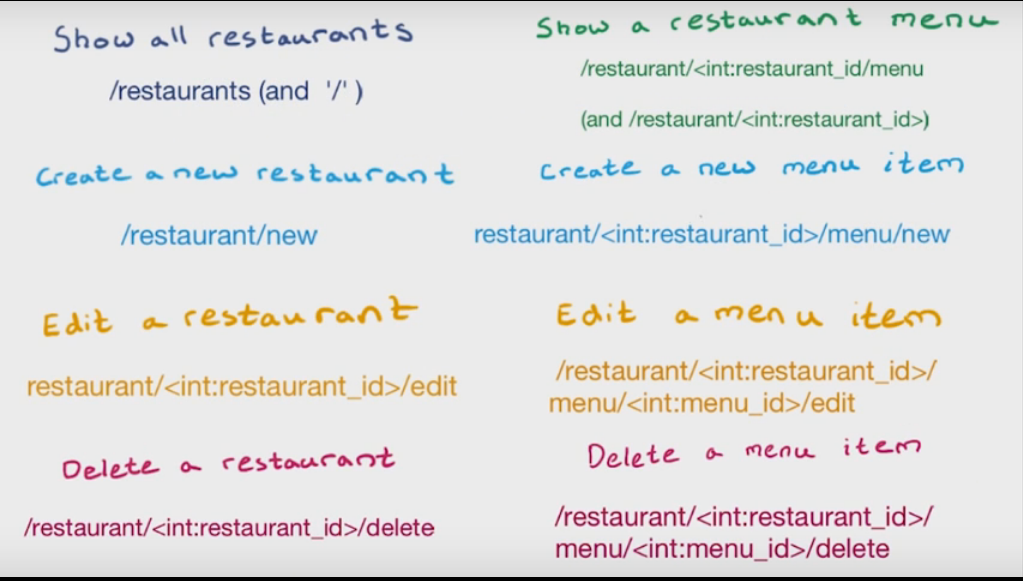 Show all restaurants
/restaurants (and '/' )
Create a new restaurant
/restaurant/new
Edit a restaurant
restaurant/<int:restaurant_id>/edit
Delete a restaurant
/restaurant/<int:restaurant_id>/delete
Show a restaurant menu
/restaurant/<int:restaurant_id/menu
(and /restaurant/<int:restaurant_id>)
Create a new menu item
restaurant/<int:restaurant_id>/menu/new
Edit a menu item
/restaurant/<int:restaurant_id>/
menu/<int:menu_id>/edit
Delete a menu item
/restaurant/<int:restaurant_id>/
menu/<int:menu_id>/delete